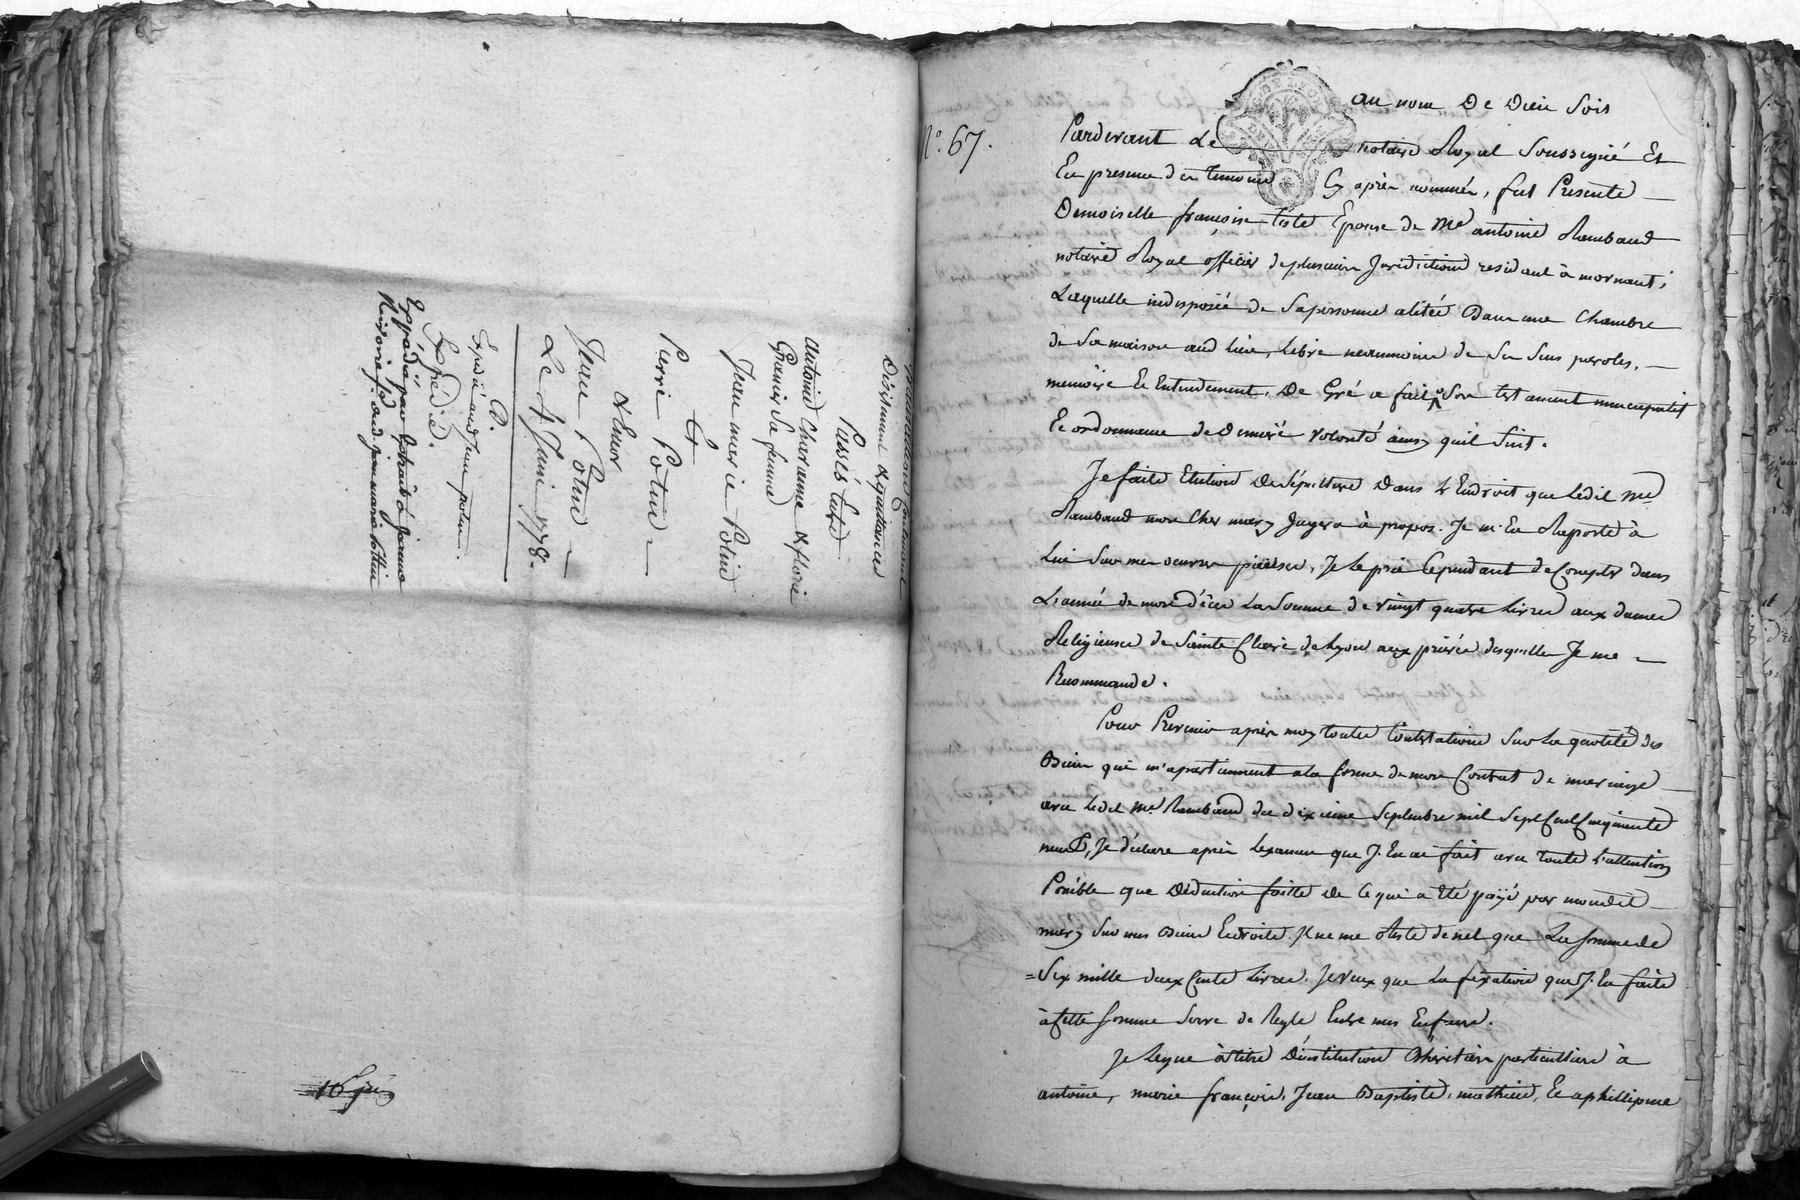 Désistement & quittances
Passés tant
antoine Charanne & florie
Granier Sa femme
Jean marie Potin
Et
Pierre Potin
& Sieur
Jean Potin
Le 4 Juin 1778.
Expédié aud Jean potin.
Expédié.
16 Juin
FRANCE
N.º 67.
au nom De Dieu Soit
Pardevant Le notaire Royal Soussigné Et
En presence des temoins Cy après nommés, fut Presente
Demoiselle françoise tiste Epouse de Me antoine Rambaud
notaire Royal officier de plusieurs Jurisdictions residant à mornant,
Laquelle indisposée de Sa personne alitée Dans une Chambre
de Sa maison aud lieu, Libre neanmoins de Ses Sens paroles,
memoire Et Entendement, De Gré a fait Son testament nuncupatif
Et ordonnance de Derniere volonté ainsy quil Suit.
Je faits Election De Sépulture Dans L'Endroit que Ledit Me
Rambaud mon Cher mary Jugera à propos. Je m'En Raporte à
Lui Sur mes oeuvres pieuses, Je Le prie Cependant de Compter dans
L'année de mon décès La Somme de vingt quatre Livres aux dames
Religieuses de Sainte Claire de Lyon aux prières desquelles Je me
Recommande.
Pour Prevenir après moy toutes Contestations Sur La quotité des
Biens qui m'apartiennent a la forme de mon Contrat de mariage
avec Ledit Me Rambaud du dixieme Septembre mil Sept Cent Cinquante
neuf, Je déclare après Lexamen que J'En ai fait avec toute L'attention
Possible que Déduction faitte de Ce qui a Eté payé par mondit
mary Sur mes Biens & droits, Il ne me Reste de net que La Somme de
Six mille deux Cents Livres. Je veux que La fixation que J'En faits
à Cette Somme Serve de Regle Entre mes Enfants.
Je Legue à titre D'institution Héréditaire particulliere à
antoine, marie françois, Jean Baptiste, mathieu, Et a phillipine